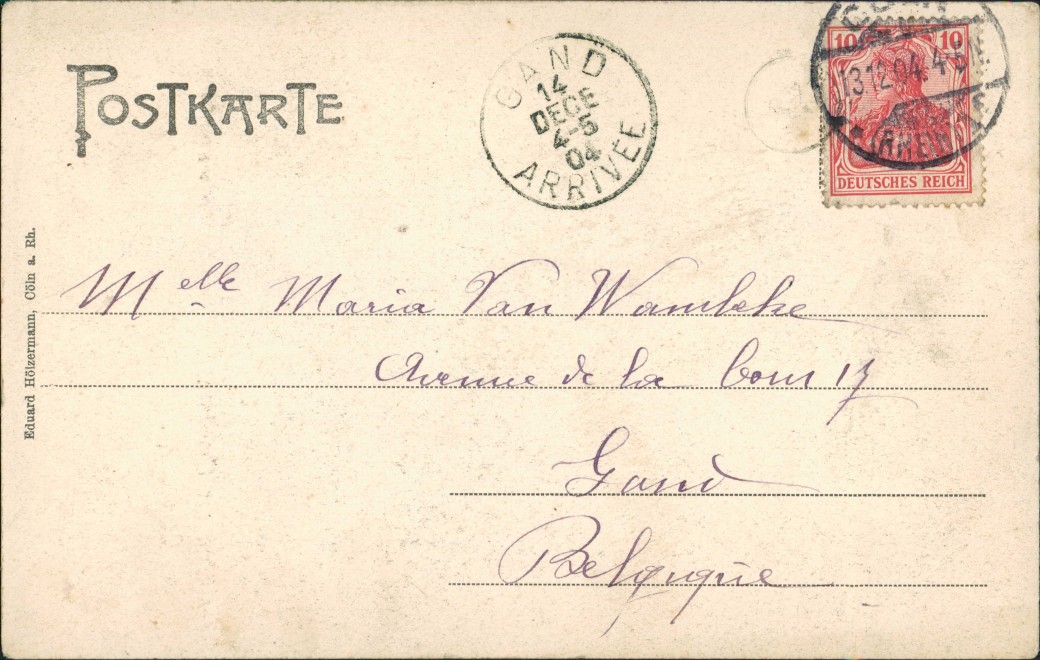 POSTKARTE
GAND
14
DECE
4-5
04
ARRIVÉE
10 10
13.12.04. 4-5N.
(RHEIN)
DEUTSCHES REICH
Eduard Hölzermann, Cöln a. Rh.
Melle Maria Van Wambeke
Avenue de la Cour 17
Gand
Belgique